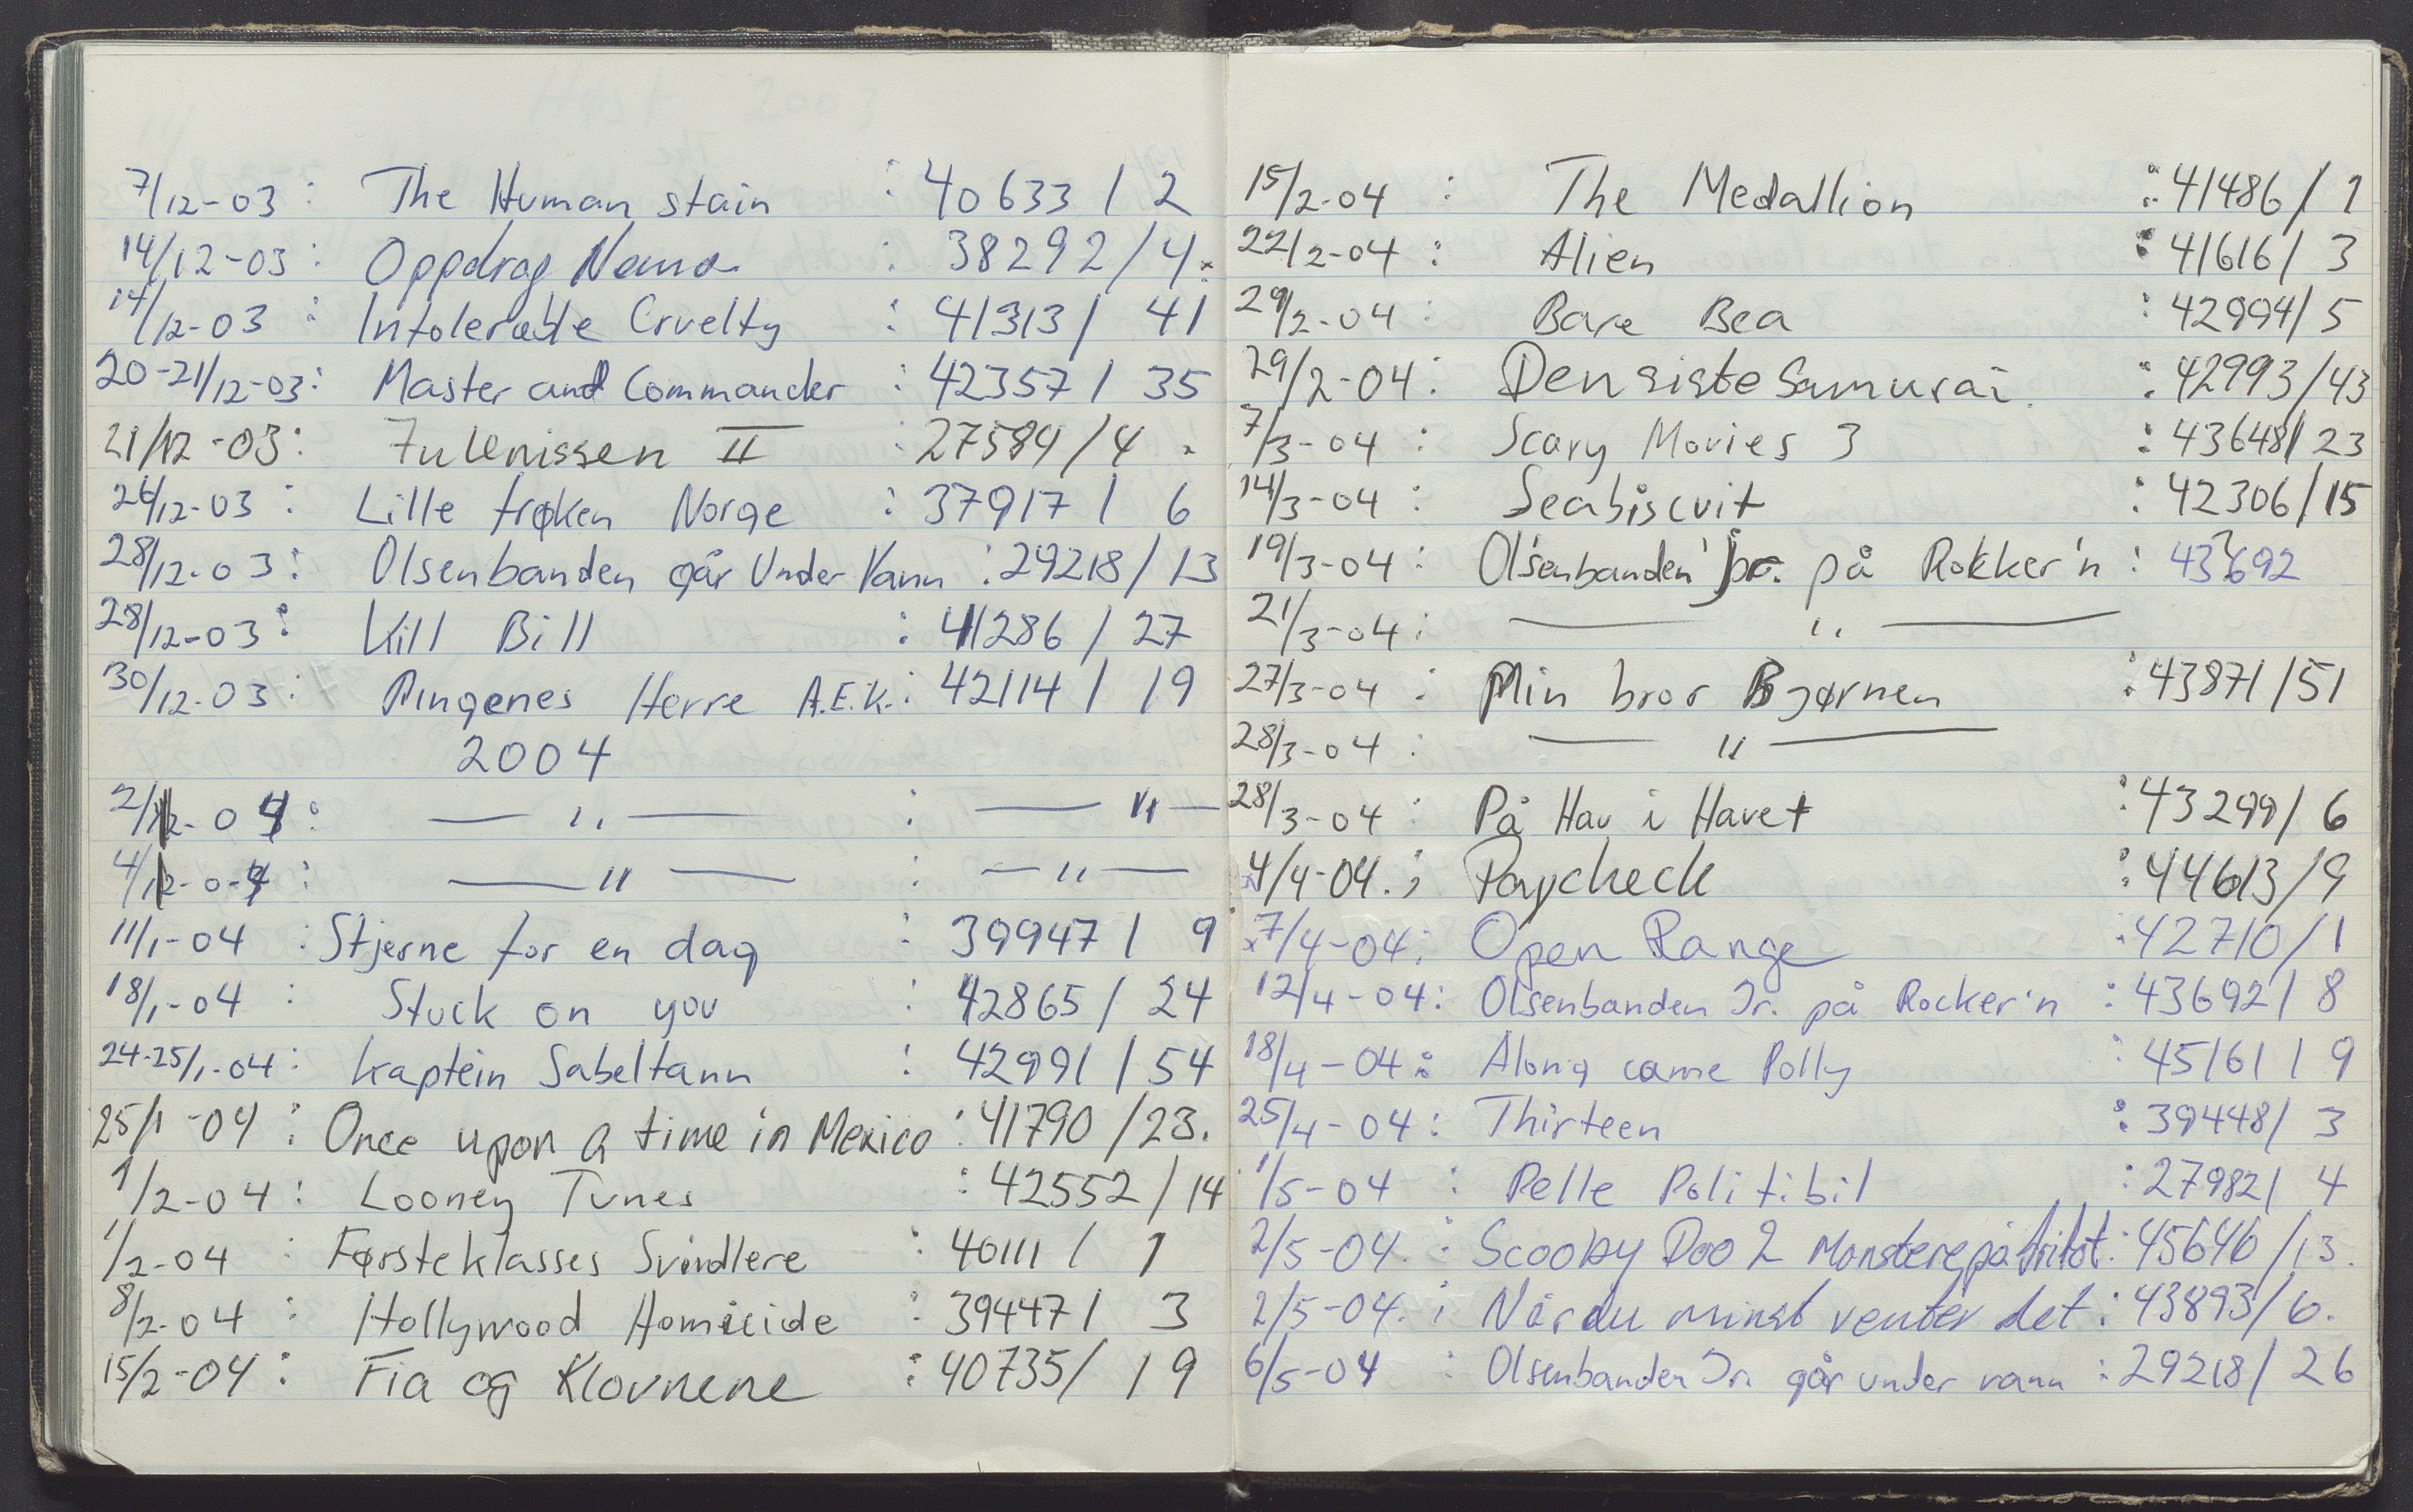 7/12-03 : The Human stain : 40633 / 2
14/12-03 : Oppdrag Nemo : 38292 / 4.
14/12-03 : Intolerable Cruelty : 41313 / 41
20-21/12-03 : Master and Commander : 42357 / 35
21/12-03 : Julenissen II : 27584 / 4.
26/12-03 : Lille frøken Norge : 37917 / 6
28/12-03 : Olsenbanden går Under Vann : 29218 / 13
28/12-03 : Kill Bill : 41286 / 27
30/12-03 : Ringenes Herre A.E.K. : 42114 / 19
2004
2/1-04 : — " — : — " —
4/1-04 : — " — : — " —
11/1-04 : Stjerne for en dag : 39947 / 9
18/1-04 : Stuck on you : 42865 / 24
24-25/1-04 : Kaptein Sabeltann : 42991 / 54
25/1-04 : Once upon a time in Mexico : 41790 / 23.
1/2-04 : Looney Tunes : 42552 / 14
1/2-04 : Førsteklasses Svindlere : 40111 / 1
8/2-04 : Hollywood Homicide : 39447 / 3
15/2-04 : Fia og Klovnene : 40735 / 19
15/2-04 : The Medallion : 41486 / 1
22/2-04 : Alien : 41616 / 3
29/2-04 : Bare Bea : 42994 / 5
29/2-04 : Den siste Samurai : 42993 / 43
7/3-04 : Scary Movies 3 : 43648 / 23
14/3-04 : Seabiscuit : 42306 / 15
19/3-04 : Olsenbanden jr. på Rokker'n : 43692
21/3-04 : — " —
27/3-04 : Min bror Bjørnen : 43871 / 51
28/3-04 : — " —
28/3-04 : På Hav i Havet : 43299 / 6
4/4-04. : Paycheck : 44613 / 9
7/4-04 : Open Range : 42710 / 1
12/4-04 : Olsenbanden Jr. på Rocker'n : 43692 / 8
18/4-04 : Along came Polly : 45161 / 9
25/4-04 : Thirteen : 39448 / 3
1/5-04 : Pelle Politibil : 27982 / 4
2/5-04. : Scooby Doo 2 Monstere på frifot : 45646 / 13.
2/5-04. : Når du minst venter det : 43893 / 6.
6/5-04 : Olsenbanden Jr. går under vann : 29218 / 26